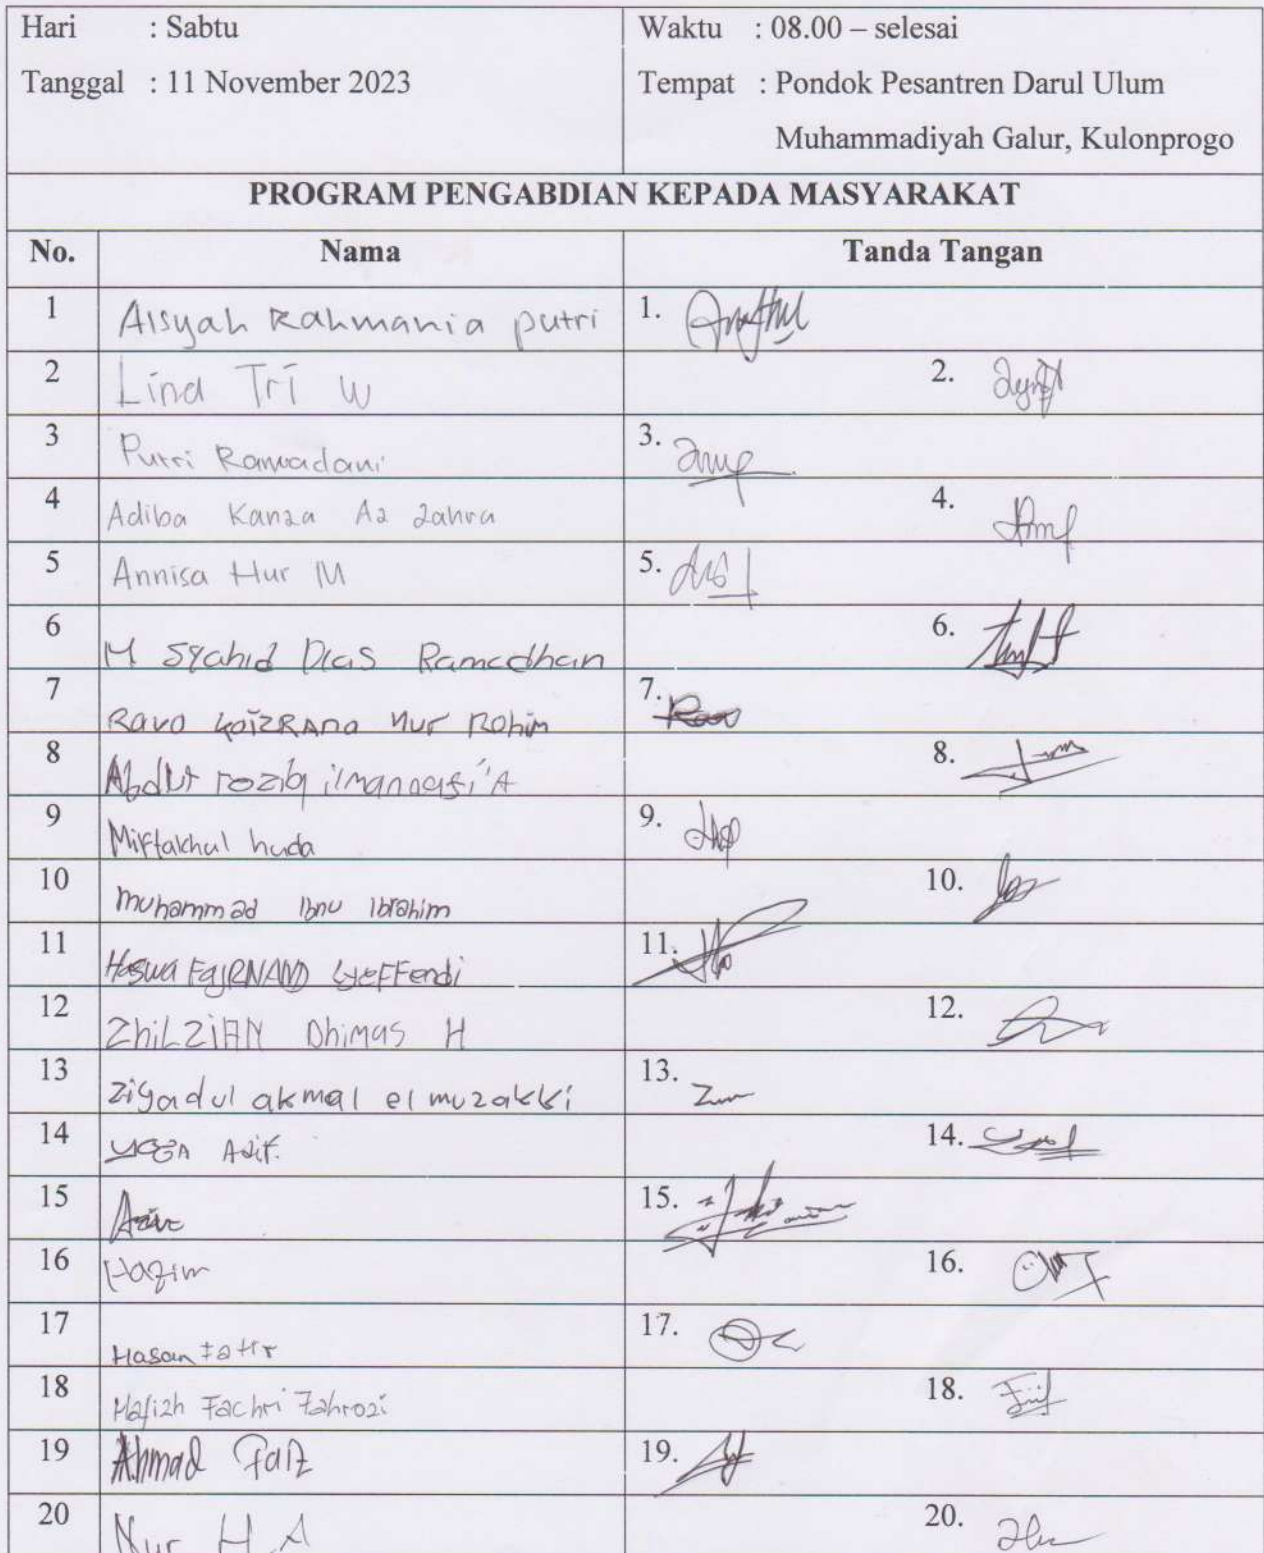 Hari : Sabtu
Tanggal : 11 November 2023
Waktu : 08.00 – selesai
Tempat : Pondok Pesantren Darul Ulum
Muhammadiyah Galur, Kulonprogo
PROGRAM PENGABDIAN KEPADA MASYARAKAT
No. Nama Tanda Tangan
1 Aisyah Rahmania putri 1.
2 Lina Tri W 2.
3 Putri Ramadani 3.
4 Adiba Kanza Az zahra 4.
5 Annisa Hur M 5.
6 M Syahid Dias Ramadhan 6.
7 Ravo Nur Rohim 7.
8 Abdul roziq 8.
9 Miftakhul huda 9.
10 muhammad Ibnu Ibrahim 10.
11 Haswa 11.
12 ZhiLZiAN Dhimas H 12.
13 Ziyadul akmal el muzakki 13.
14 YOGA Adit. 14.
15 15.
16 Hazim 16.
17 Hasan 17.
18 Hafizh Fachri Fahrozi 18.
19 Ahmad Faiz 19.
20 Nur H.A 20.